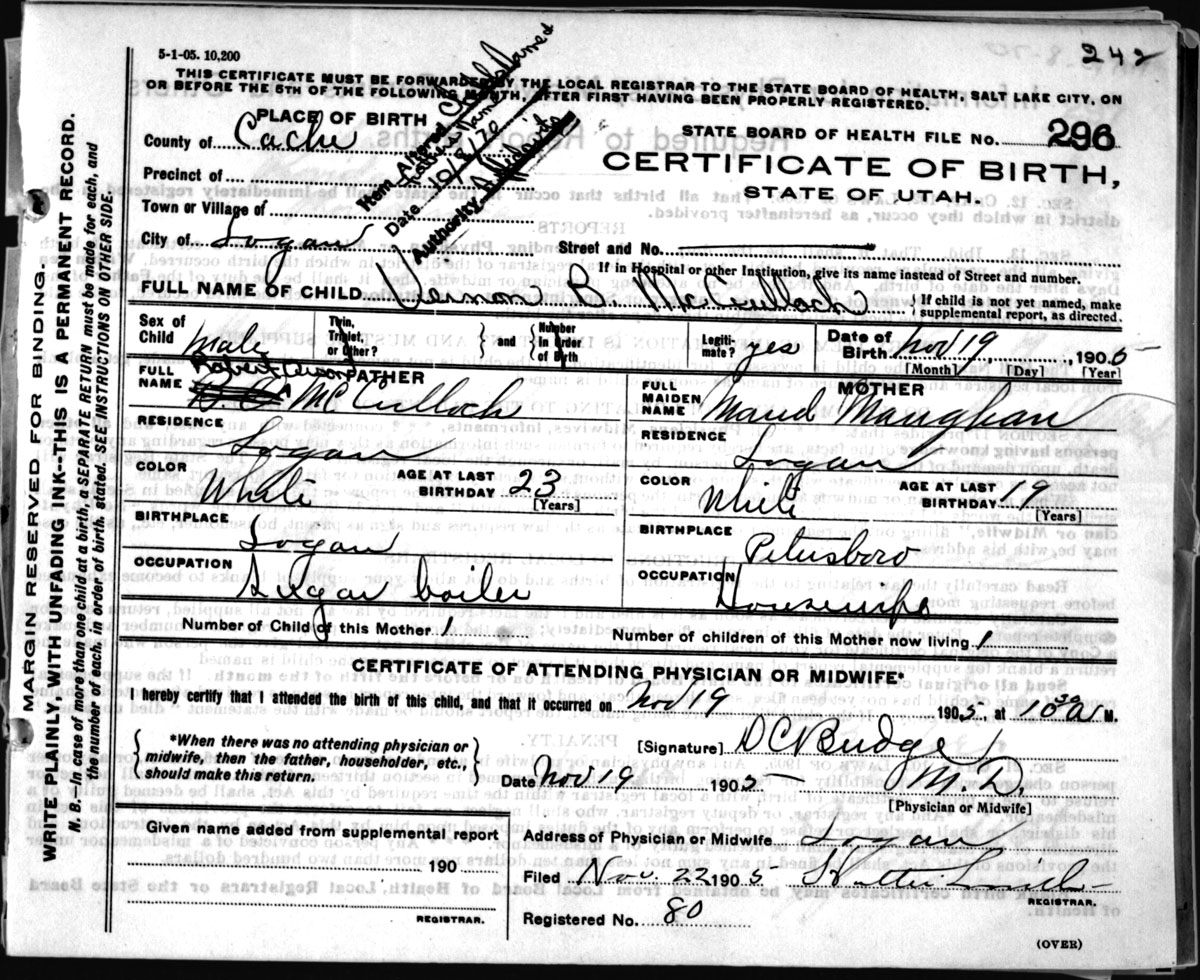 242
5-1-05. 10,200
THIS CERTIFICATE MUST BE FORWARDED BY THE LOCAL REGISTRAR TO THE STATE BOARD OF HEALTH, SALT LAKE CITY, ON
OR BEFORE THE 5TH OF THE FOLLOWING MONTH, AFTER FIRST HAVING BEEN PROPERLY REGISTERED.
PLACE OF BIRTH
STATE BOARD OF HEALTH FILE No. 296
County of Cache
CERTIFICATE OF BIRTH,
STATE OF UTAH.
Precinct of
Town or Village of
City of Logan
Street and No.
Item Altered
Father's Name
Date 10/8/70
Authority Affidavits
If in Hospital or other Institution, give its name instead of Street and number.
FULL NAME OF CHILD Vernon R. McCulloch
{ If child is not yet named, make
supplemental report, as directed.
Sex of Child male
Twin, Triplet, or Other?
} and { Number in Order of Birth
Legiti-mate? yes
Date of Birth Nov 19, 1905
[Month] [Day] [Year]
FATHER
FULL NAME Robert McCulloch
RESIDENCE Logan
COLOR White
AGE AT LAST BIRTHDAY 23
[Years]
BIRTHPLACE Logan
OCCUPATION Sugar boiler
MOTHER
FULL MAIDEN NAME Maud Maughan
RESIDENCE Logan
COLOR White
AGE AT LAST BIRTHDAY 19
[Years]
BIRTHPLACE Petersboro
OCCUPATION Housewife
Number of Child of this Mother 1
Number of children of this Mother now living 1
CERTIFICATE OF ATTENDING PHYSICIAN OR MIDWIFE*
I hereby certify that I attended the birth of this child, and that it occurred on Nov 19 1905, at 10 30 A M.
{ *When there was no attending physician or
midwife, then the father, householder, etc.,
should make this return. }
[Signature] D C Budge
Date Nov 19 1905
M.D.
[Physician or Midwife]
Given name added from supplemental report
190
REGISTRAR.
Address of Physician or Midwife Logan
Filed Nov. 22 1905 Hattie Smith
REGISTRAR.
Registered No. 80
(OVER)
MARGIN RESERVED FOR BINDING.
WRITE PLAINLY WITH UNFADING INK--THIS IS A PERMANENT RECORD.
N. B. In case of more than one child at a birth, a SEPARATE RETURN must be made for each, and
the number of each, in order of birth, stated. SEE INSTRUCTIONS ON OTHER SIDE.